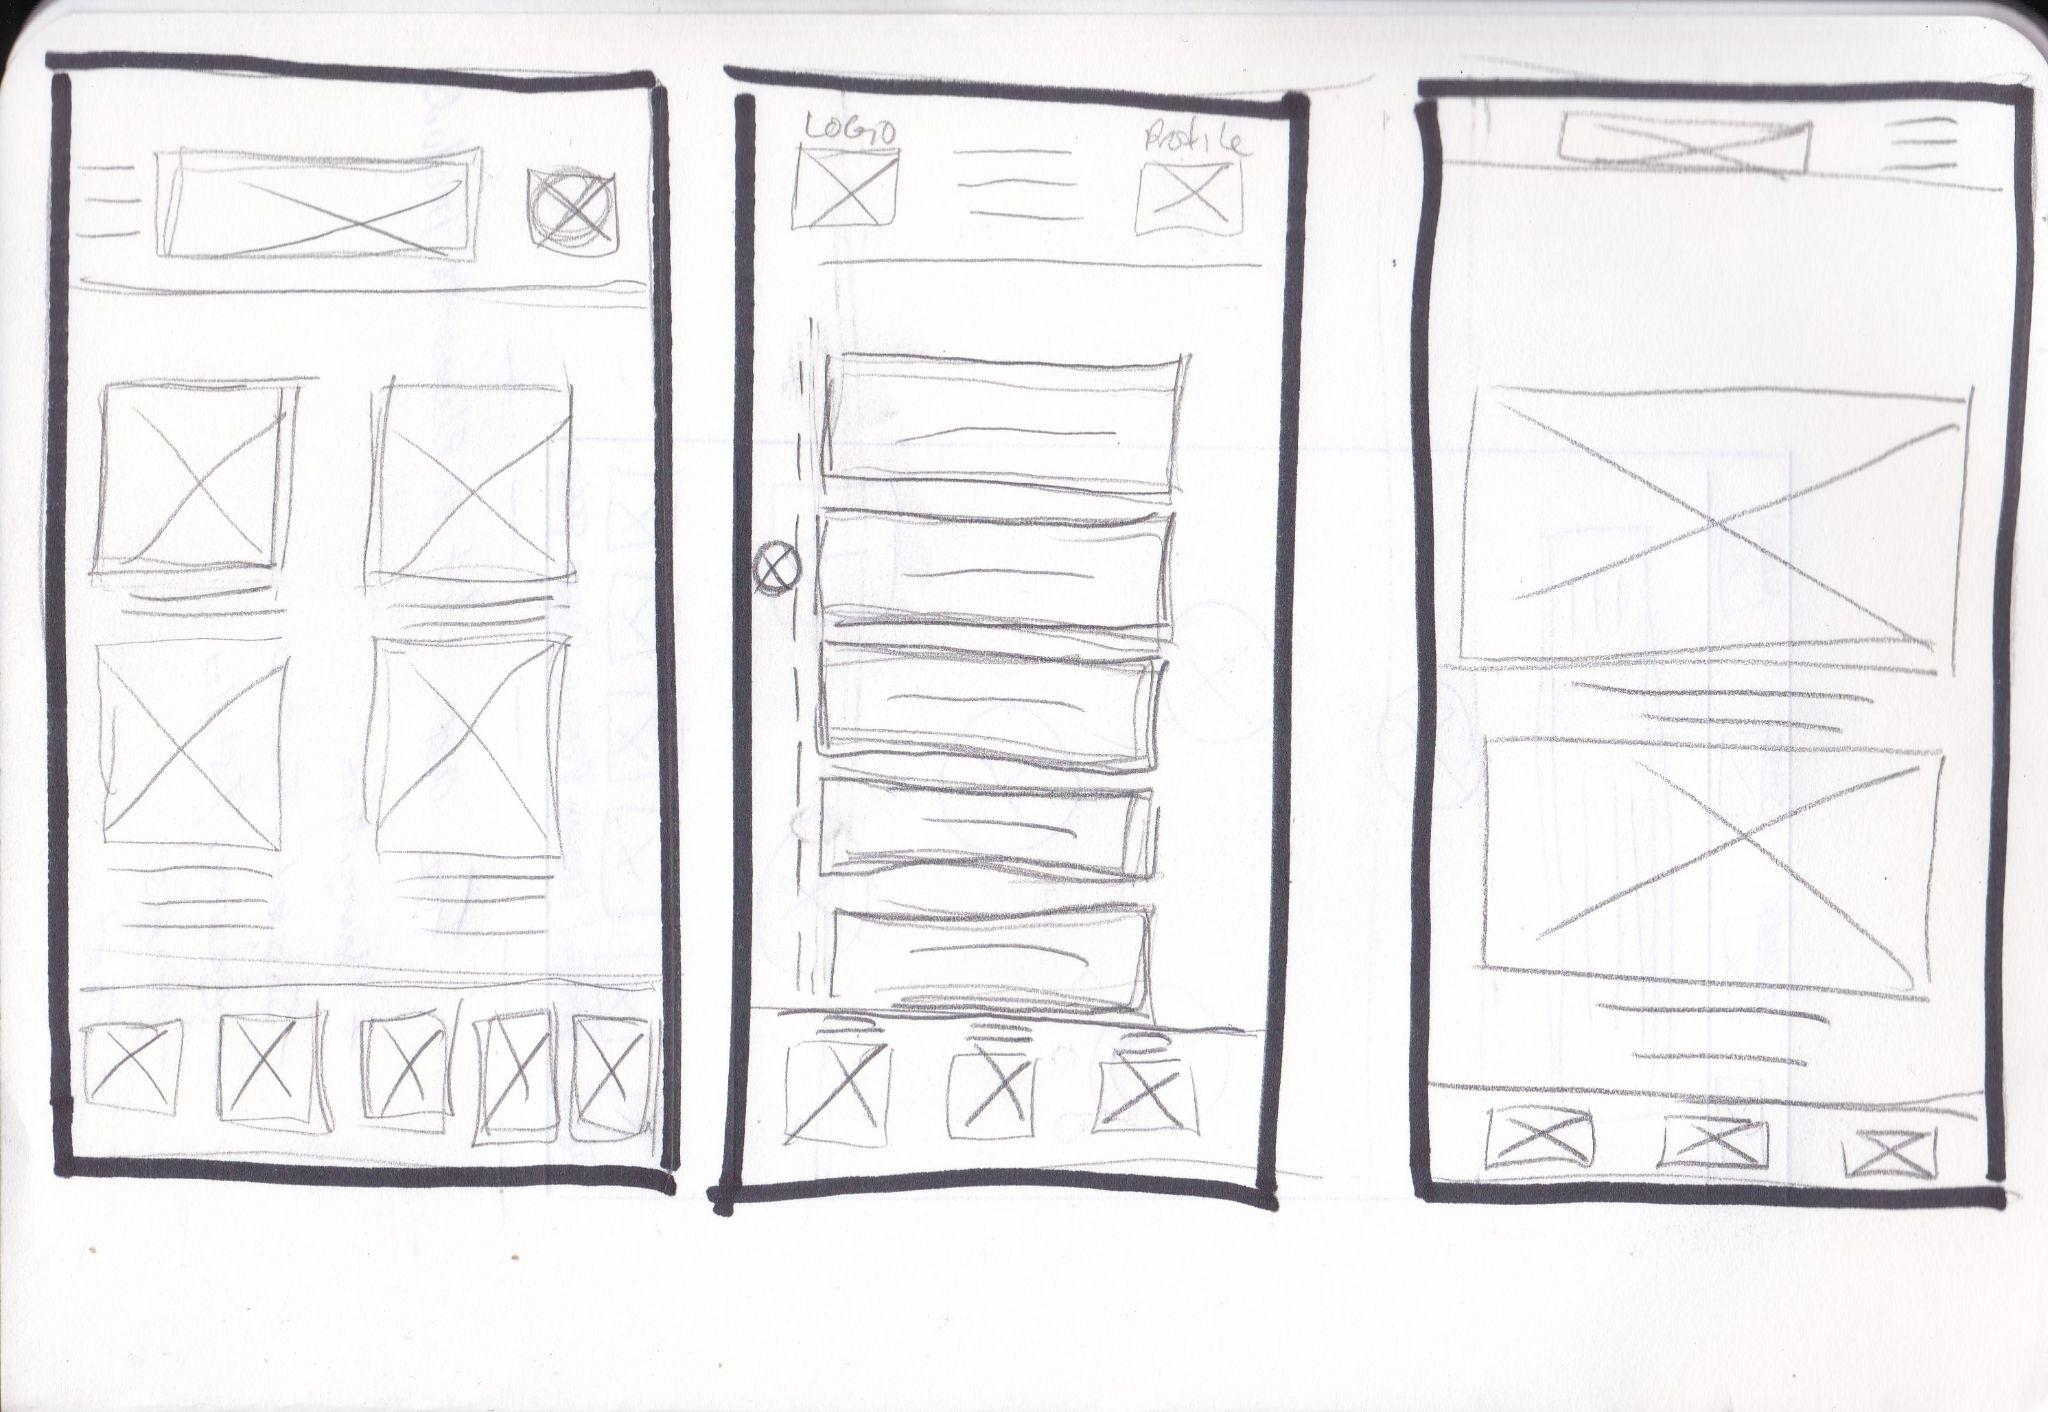 Logo
Profile